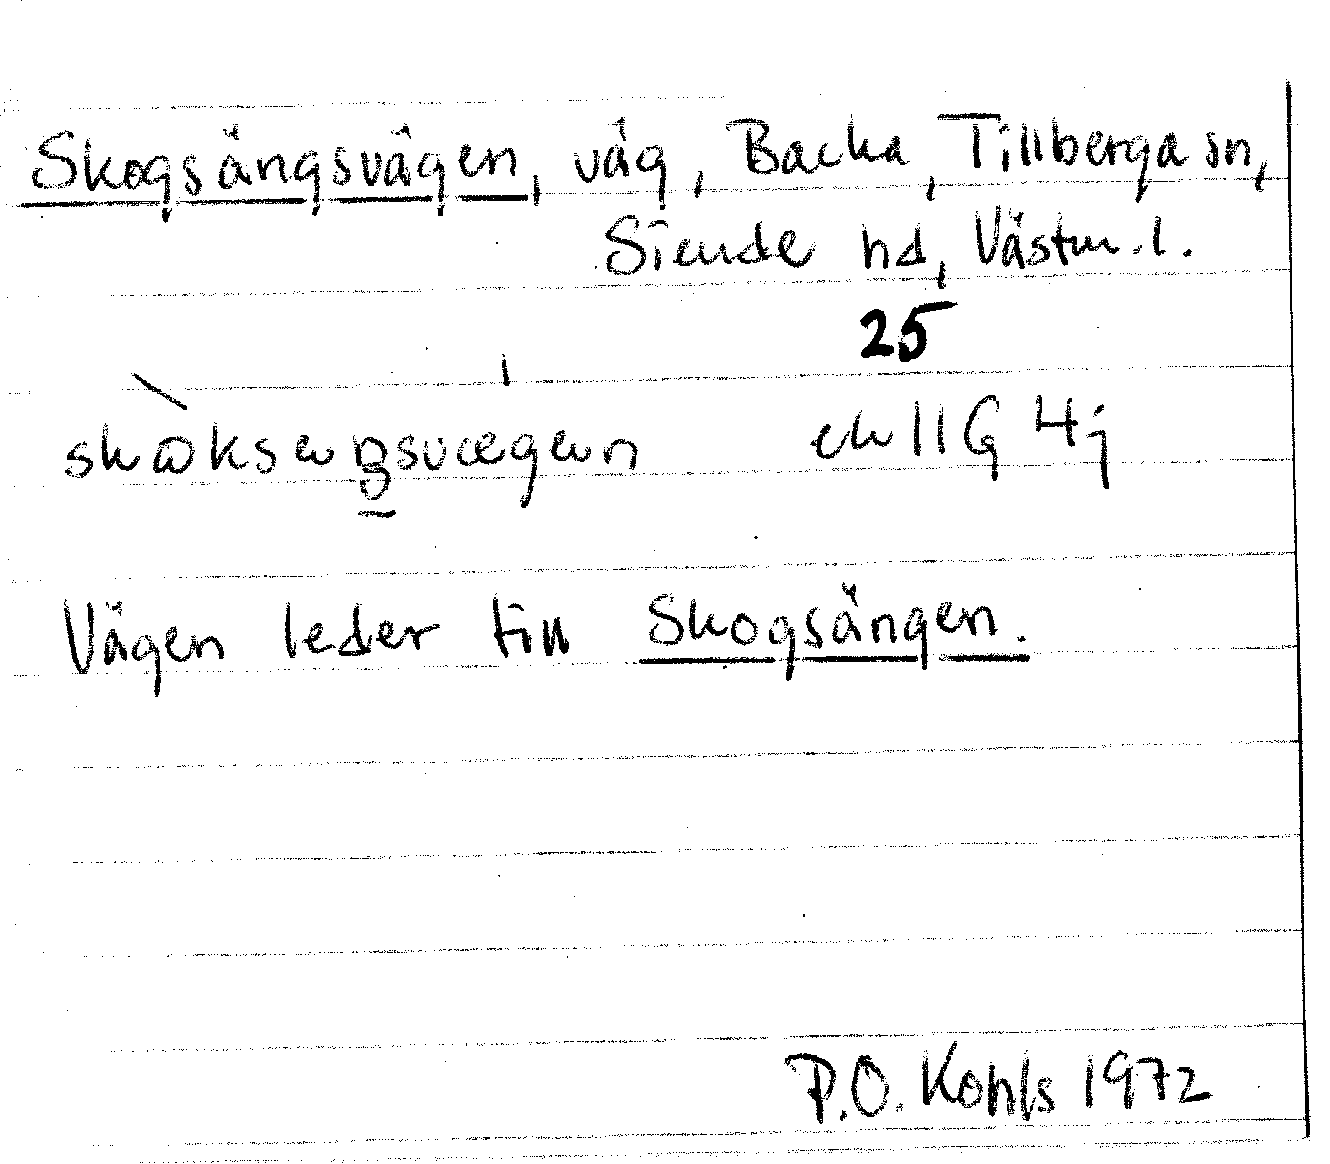 Skogsängsvägen, väg, Backa, Tillberga sn,
Siende hd, Västm. l.
25
ek 11G 4j
Vägen leder till Skogsängen.
P.O. Kohls 1972